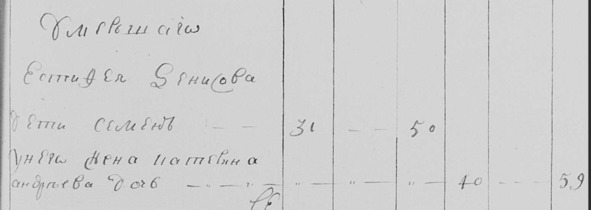 Умершаго
Естифея Денисова
дети Семенъ 31 50
у него жена Матвина
андреева дочь 40 59